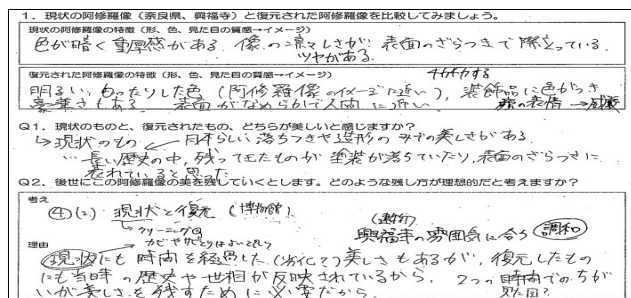 1．現状の阿修羅像（奈良県、興福寺）と復元された阿修羅像を比較してみましょう。
現状の阿修羅像の特徴（形、色、見た目の質感→イメージ）
色が暗く重厚感がある。像の凛々しさが表面のざらつきで際立っている。
ツヤがある。
復元された阿修羅像の特徴（形、色、見た目の質感→イメージ）
明るい、もったりした色（阿修羅像のイメージに近い）、装飾品に色がつき
豪華さもある 表面がなめらかで人間に近い 顔の表情→
Q1．現状のものと、復元されたもの、どちらが美しいと感じますか？
↳現状のもの 日本らしい落ちつきや造形の美しさがある
…長い歴史の中、残ってきたものが塗装が落ちていたり、表面のざらつきに
表れていると思った
Q2．後世にこの阿修羅像の美を残していくとします。どのような残し方が理想的だと考えますか？
考え
④(2) 現状と復元（博物館）
クリーニング
カビやサビとりはよいとして
興福寺の雰囲気に合う 調和
理由
現状にも時間を経過した（劣化？）美しさもあるが、復元したもの
にも当時の歴史や世相が反映されているから。 2つの時間でのちが
いが美しさを残すために必要だから。 見た目？